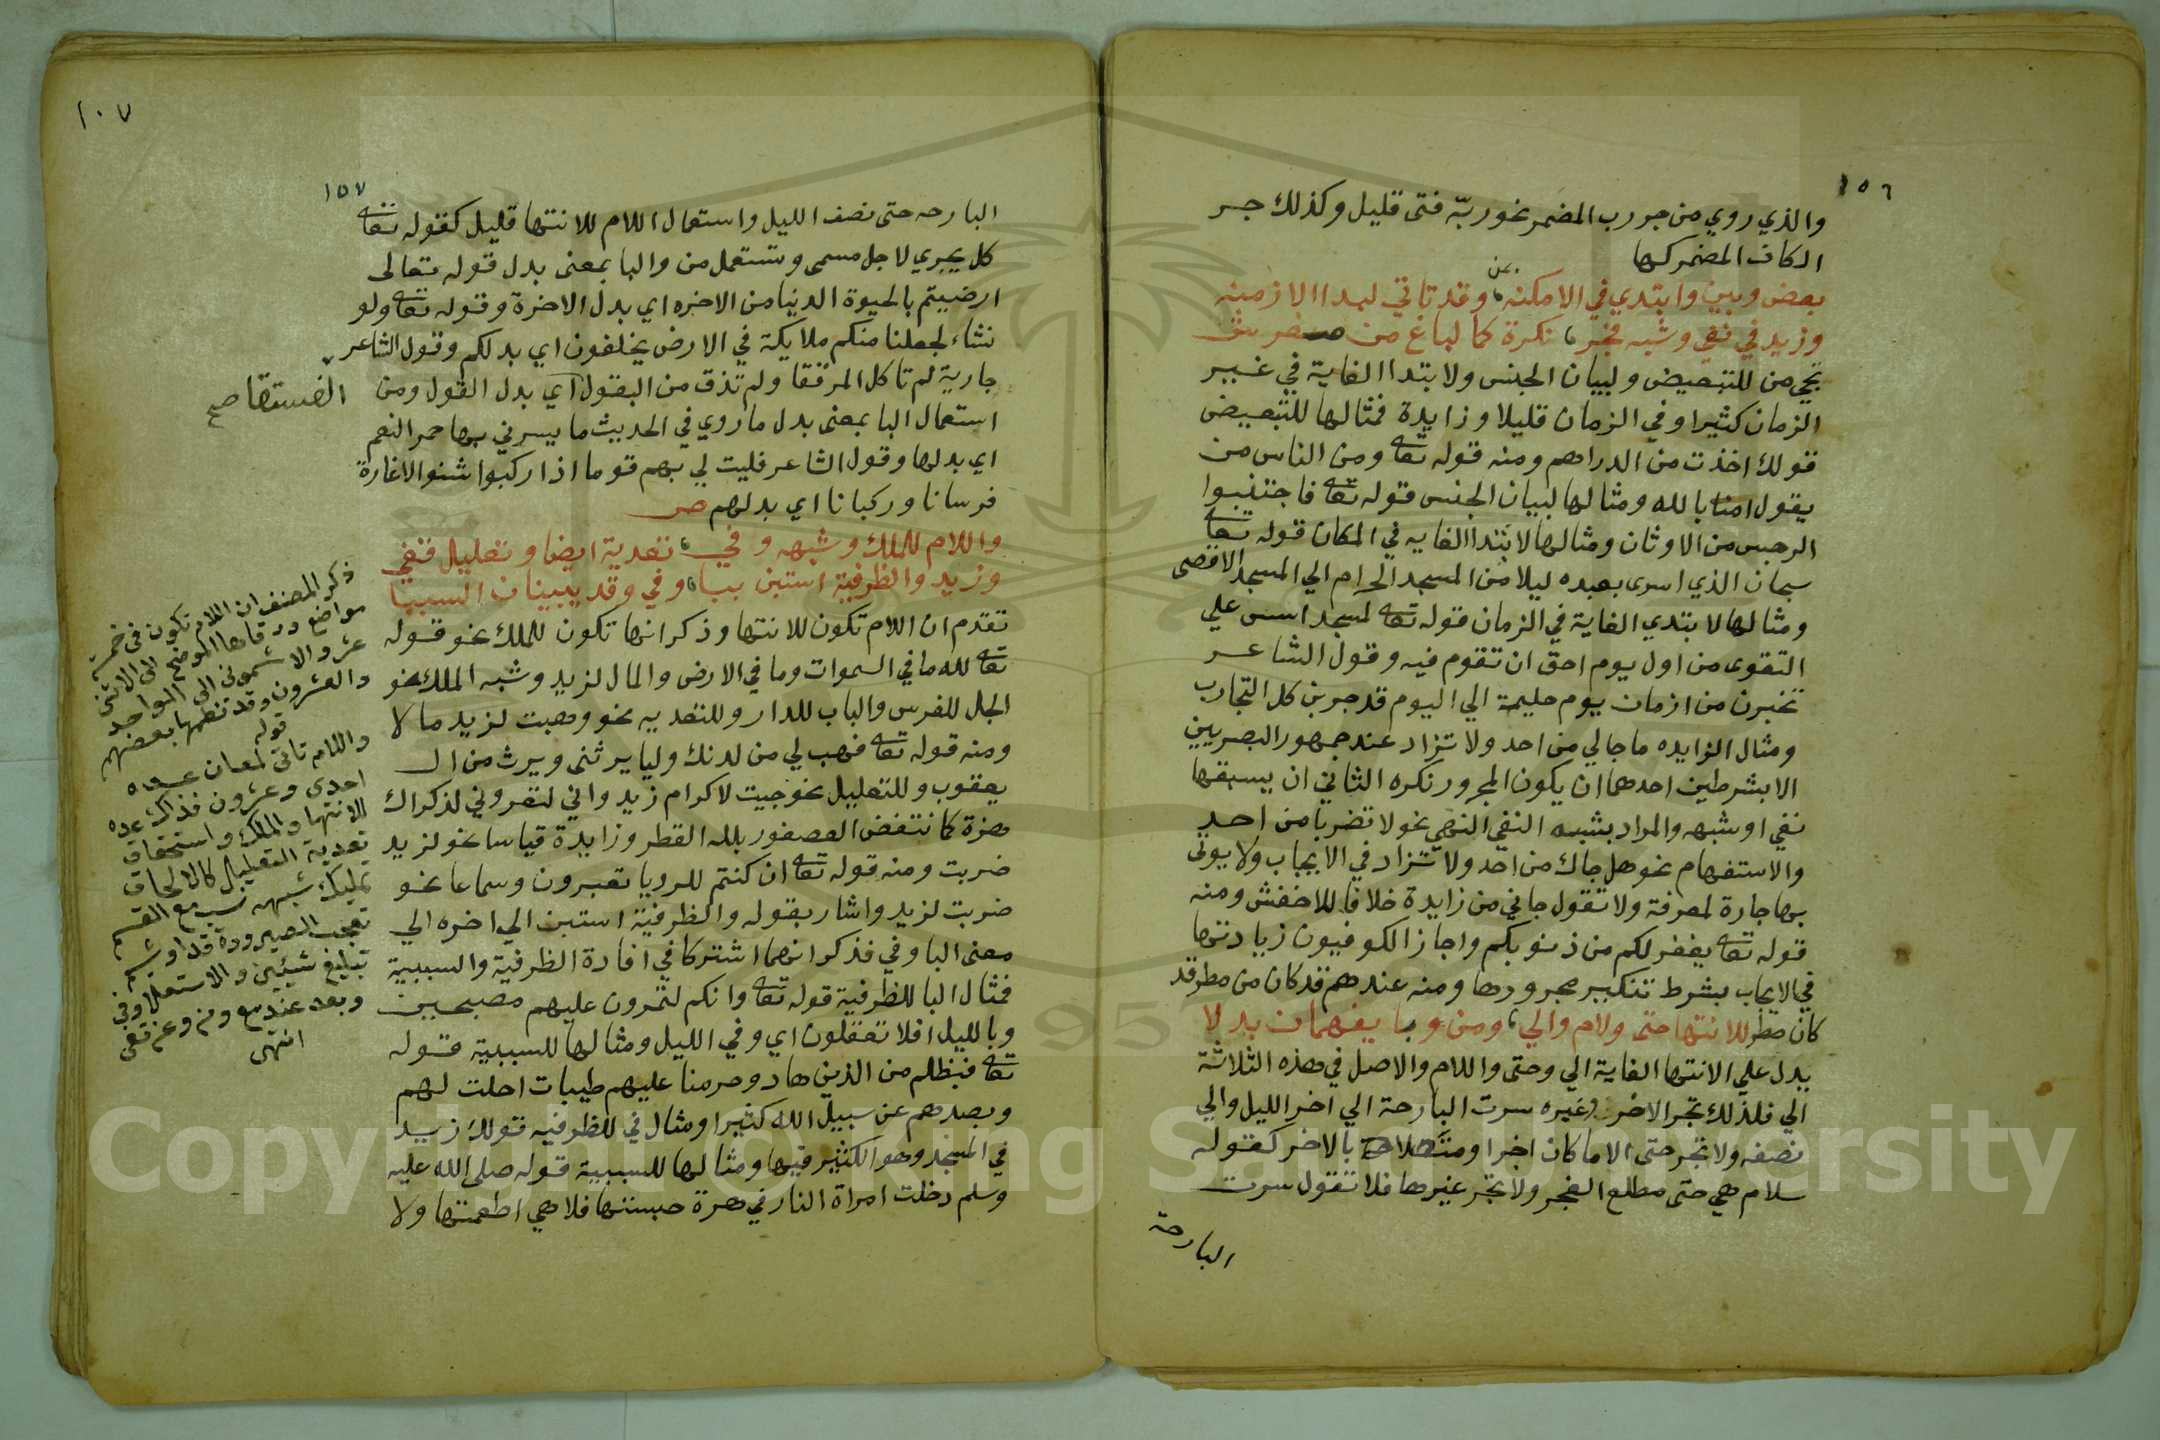 ١٥٦
والذي روي من جر رب المضمر نحو ربه فتى قليل وكذلك جر
الكاف المضمر كها
بعض وبين وابتدي في الامكنه بمن وقد تاتي لبدا الازمنه
وزيد في نفي وشبه فجر نكرة كما لباغ من مفر ش
تجي من للتبعيض ولبيان الجنس ولابتدا الغاية في غير
الزمان كثيرا وفي الزمان قليلا وزايدة فمثالها للتبعيض
قولك اخذت من الدراهم ومنه قوله تعا ومن الناس من
يقول امنا بالله ومثالها لبيان الجنس قوله تعا فاجتنبوا
الرجس من الاوثان ومثالها لابتدا الغايه في المكان قوله تعا
سبحان الذي اسرى بعبده ليلا من المسجد الحرام الي المسجد الاقصى
ومثالها لابتدي الغاية في الزمان قوله تعا لمسجد اسس علي
التقوى من اول يوم احق ان تقوم فيه وقول الشاعر
تخبرن من ازمان يوم حليمة الي اليوم قد جربن كل التجارب
ومثال الزايده ما جالي من احد ولا تزاد عند جمهور البصريين
الابشرطين احدهما ان يكون المجرور نكره الثاني ان يسبقها
نفي او شبهه والمراد بشبه النفي النهي نحو لا تضربا من احد
والاستفهام نحو هل جاك من احد ولا تزاد في الايجاب ولا يوتى
بها جارة لمعرفة ولا تقول جاني من زايدة خلافا للاخفش ومنه
قوله تعا يغفر لكم من ذنوبكم واجاز الكوفيون زيادتها
في الايجاب بشرط تنكير مجرورها ومنه عندهم قد كان من مطر قد
كان مطر للانتها حتى ولام والي ومن وبا يفهمان بدلا
يدل علي الانتها الغاية الي وحتى واللام والاصل في هذه الثلاثة
الي فلذلك تجر الاخر وغيره سرت البارحة الي اخر الليل والي
نصفه ولا تجر حتى الا ما كان اخرا ومتصلا بالاخر كقوله
سلام هي حتى مطلع الفجر ولا تجر غيرها فلا تقول سرت
البارحة
١٠٧
١٥٧
البارحه حتى نصف الليل واستعمال اللام للانتها قليل كقوله تعا
كل يجري لاجل مسمى وتستعمل من والبا بمعنى بدل قوله تعالى
ارضيتم بالحيوة الدنيا من الاخره اي بدل الاخرة وقوله تعا ولو
نشاء لجعلنا منكم ملايكة في الارض يخلفون اي بدلكم وقول الشاعر
جارية لم تاكل المرققا ولم تذق من البقول اي بدل القول ومن
الفستقا صح
استعمال البا بمعنى بدل ما روي في الحديث ما يسرني بها حمر النعم
اي بدلها وقول الشاعر فليت لي بهم قوما اذا ركبوا شنوا الاغارة
فرسانا وركبانا اي بدلهم ص
واللام للملك وشبهه وفي تعدية ايضا وتعليل قفي
وزيد والظرفية استبن ببا وفي وقد يبينان السببا
تقدم ان اللام تكون للانتها وذكر انها تكون للملك نحو قوله
تعا لله ما في السموات وما في الارض والمال لزيد وشبه الملك نحو
الجل للفرس والباب للدار وللتعديه نحو وهبت لزيد مالا
ومنه قوله تعا فهب لي من لدنك وليا يرثنى ويرث من ال
يعقوب وللتعليل نحو جيت لاكرام زيد واني لتعروني لذكراك
هزة كما نتفض العصفور بلله القطر وزايدة قياسا نحو لزيد
ضربت ومنه قوله تعا ان كنتم للرويا تعبرون وسماعا نحو
ضربت لزيد واشار بقوله والظرفية استبن الي اخره الي
معنى البا وفي فذكر انهما اشتركا في افادة الظرفية والسببية
فمثال البا للظرفية قوله تعا وانكم لتمرون عليهم مصبحين
وبالليل افلا تعقلون اي وفي الليل ومثالها للسببية قوله
تعا فبظلم من الذين هادو حرمنا عليهم طيبات احلت لهم
وبصدهم عن سبيل الله كثيرا ومثال في للظرفيه قولك زيد
في المسجد وهو الكثير فيها ومثالها للسببية قوله صلى الله عليه
وسلم دخلت امراة النار في هرة حبستها فلا هي اطعمتها ولا
ذكر المصنف ان اللام تكون في خمسة
مواضع ورقاها الموضح الى الاثنى
عشر والاشموني الى الواحد
والعشرون وقد نظمها بعضهم
قوله
واللام تاتى لمعان عده
احدى وعشرون فذاك عده
للانتها والملك واستحقاق
تعدية التعليل كالالحاق
تمليك شبهه مع القسم
تعجب الصيرورة
تبليغ والاستعلا وفى
وبعد عند مع ومن وعن تفى
انتهى